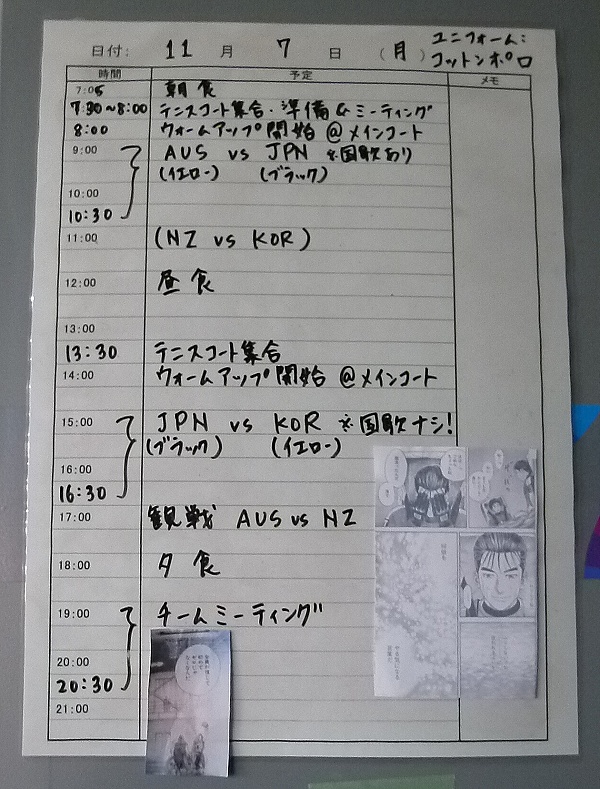 日付: 11 月 7 日 (月) ユニフォーム:
コットンポロ
時間 予定 メモ
7:05 朝食
7:30~8:00 テニスコート集合・準備&ミーティング
8:00 ウォームアップ開始 @メインコート
9:00 AUS vs JPN ※国歌あり
(イエロー) (ブラック)
10:00
10:30
11:00 (NZ vs KOR)
12:00 昼食
13:00
13:30 テニスコート集合
14:00 ウォームアップ開始 @メインコート
15:00 JPN vs KOR ※国歌ナシ!
(ブラック) (イエロー)
16:00
16:30
17:00 観戦 AUS vs NZ
18:00 夕食
19:00 チームミーティング
20:00
20:30
21:00